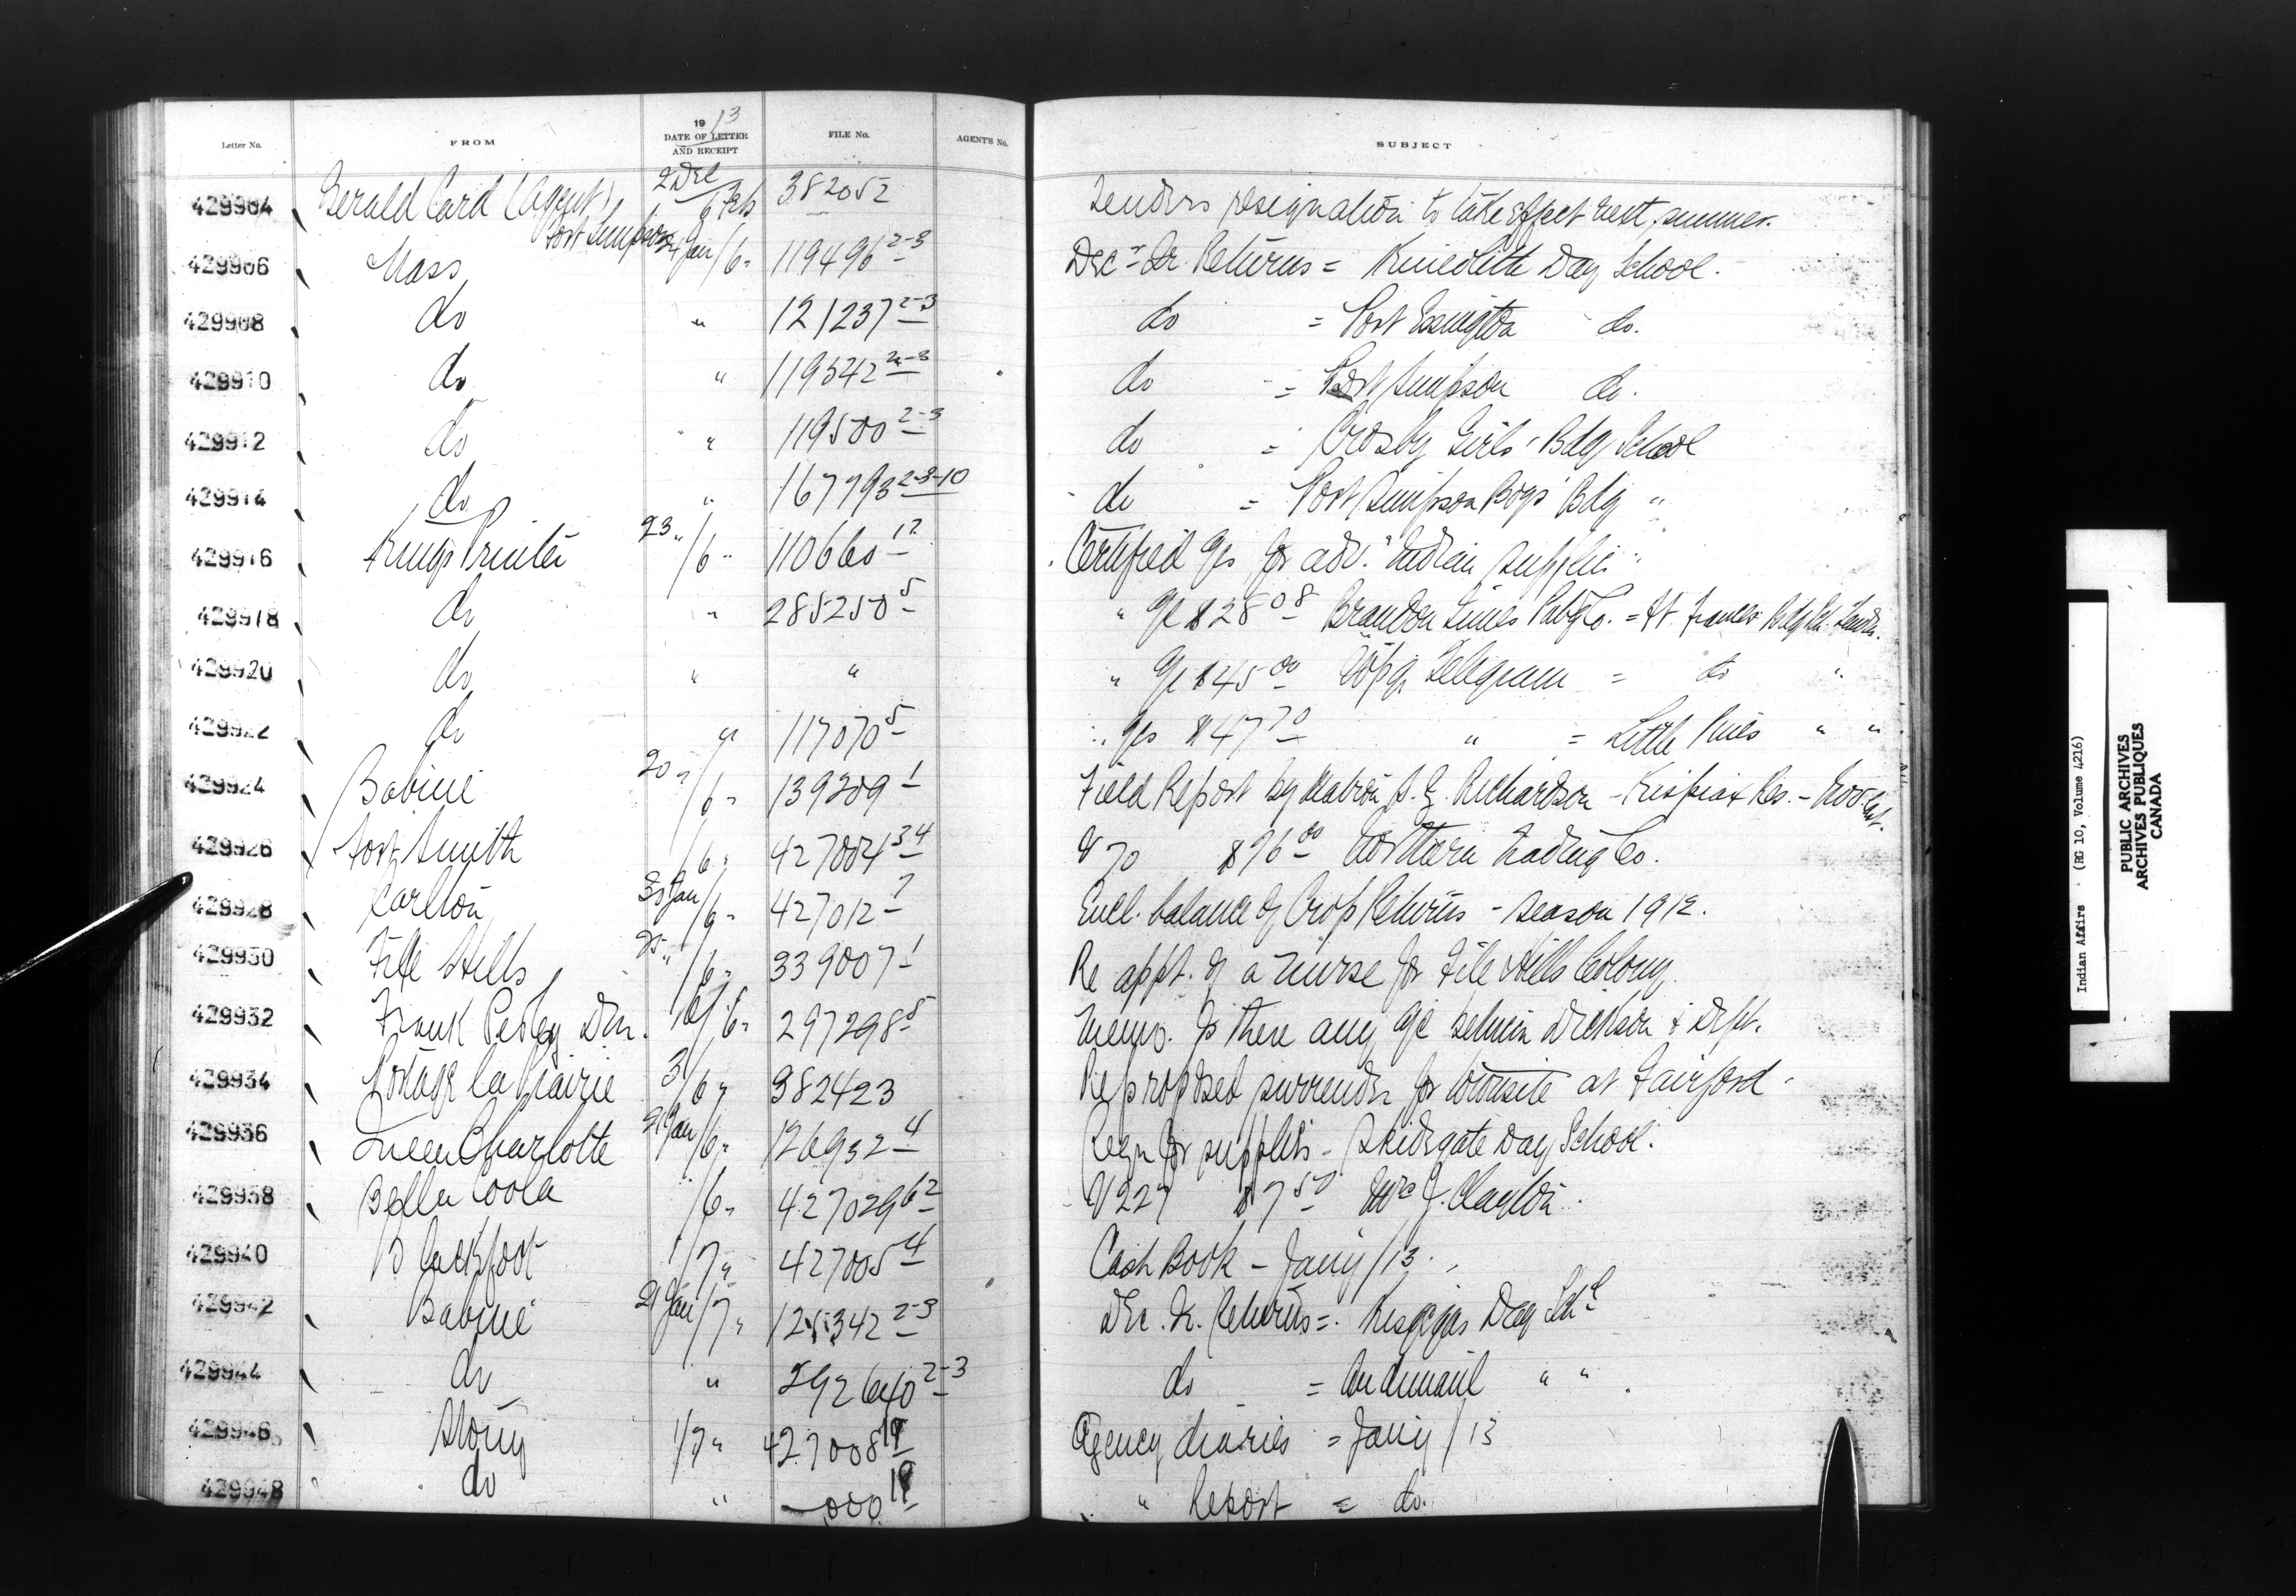 Letter No. FROM 1913 DATE OF LETTER AND RECEIPT FILE No. AGENT'S No. SUBJECT
429904 Gerald Card (Agent) Fort Simpson 2 Dec 6 Feb 382052 Tenders resignation to take effect next summer.
429906 Nass 24 Jan/6 " 119496 2-3 Dec Qr. Returns = Kincolith Day School.
429908 do " 121237 2-3 do = Port Essington do.
429910 do " 119342 2-3 do = Port Simpson do.
429912 do " 119500 2-3 do = Crosby Girls' Bdg School
429914 do " 167793 2-3-10 do = Port Simpson Boys' Bdg "
429916 Kings Printer 23 "/6 " 110660 12 Certified a/cs for adv. "Indian Supplies"
429918 do " 285250 5 " a/c $28 08 Brandon Times Pub'g Co. = Ft. Frances Bdg
429920 do " " " a/c $45 00 Wpg. Telegram = do "
429922 do " 117070 5 " a/cs $47 70 " = Little Pines " "
429924 Babine 20 "/6 " 139209 1 Field Report by Matron Richardson - Kispiax Res. -
429926 Fort Smith /6 " 427004 34 V 70 $96 00 Northern Trading Co.
429928 Carlton 30 Jan/6 " 427012 7 Encl. balance of Crop Returns - Season 1912.
429930 File Hills 25 "/6 " 339007 1 Re appt. of a nurse for File Hills Colony.
429932 Frank Pedley Dm. /6 " 297298 5 Memo. Is there any a/c between Dickson & Dept.
429934 Portage la Prairie 3/6 " 382423 Re proposed surrender for townsite at Fairford -
429936 Queen Charlotte 21 Jan/6 " 126932 4 Reqn for supplies - Skidegate Day School.
429938 Bella Coola " /6 " 427029 62 V 227 $7 50 Mrs J. Clayton.
429940 Blackfoot 1/7 " 427005 4 Cash Book - Jany/13.
429942 Babine 21 Jan/7 " 125342 2-3 Dec. Qr. Returns = Kisgegas Day Schl
429944 do " 292640 2-3 do = Andimaul " "
429946 Stony 1/7 " 427008 19 Agency diaries = Jany/13
429948 do " 000 19 " Report = do.
Indian Affairs (RG 10, Volume 4216)
PUBLIC ARCHIVES
ARCHIVES PUBLIQUES
CANADA